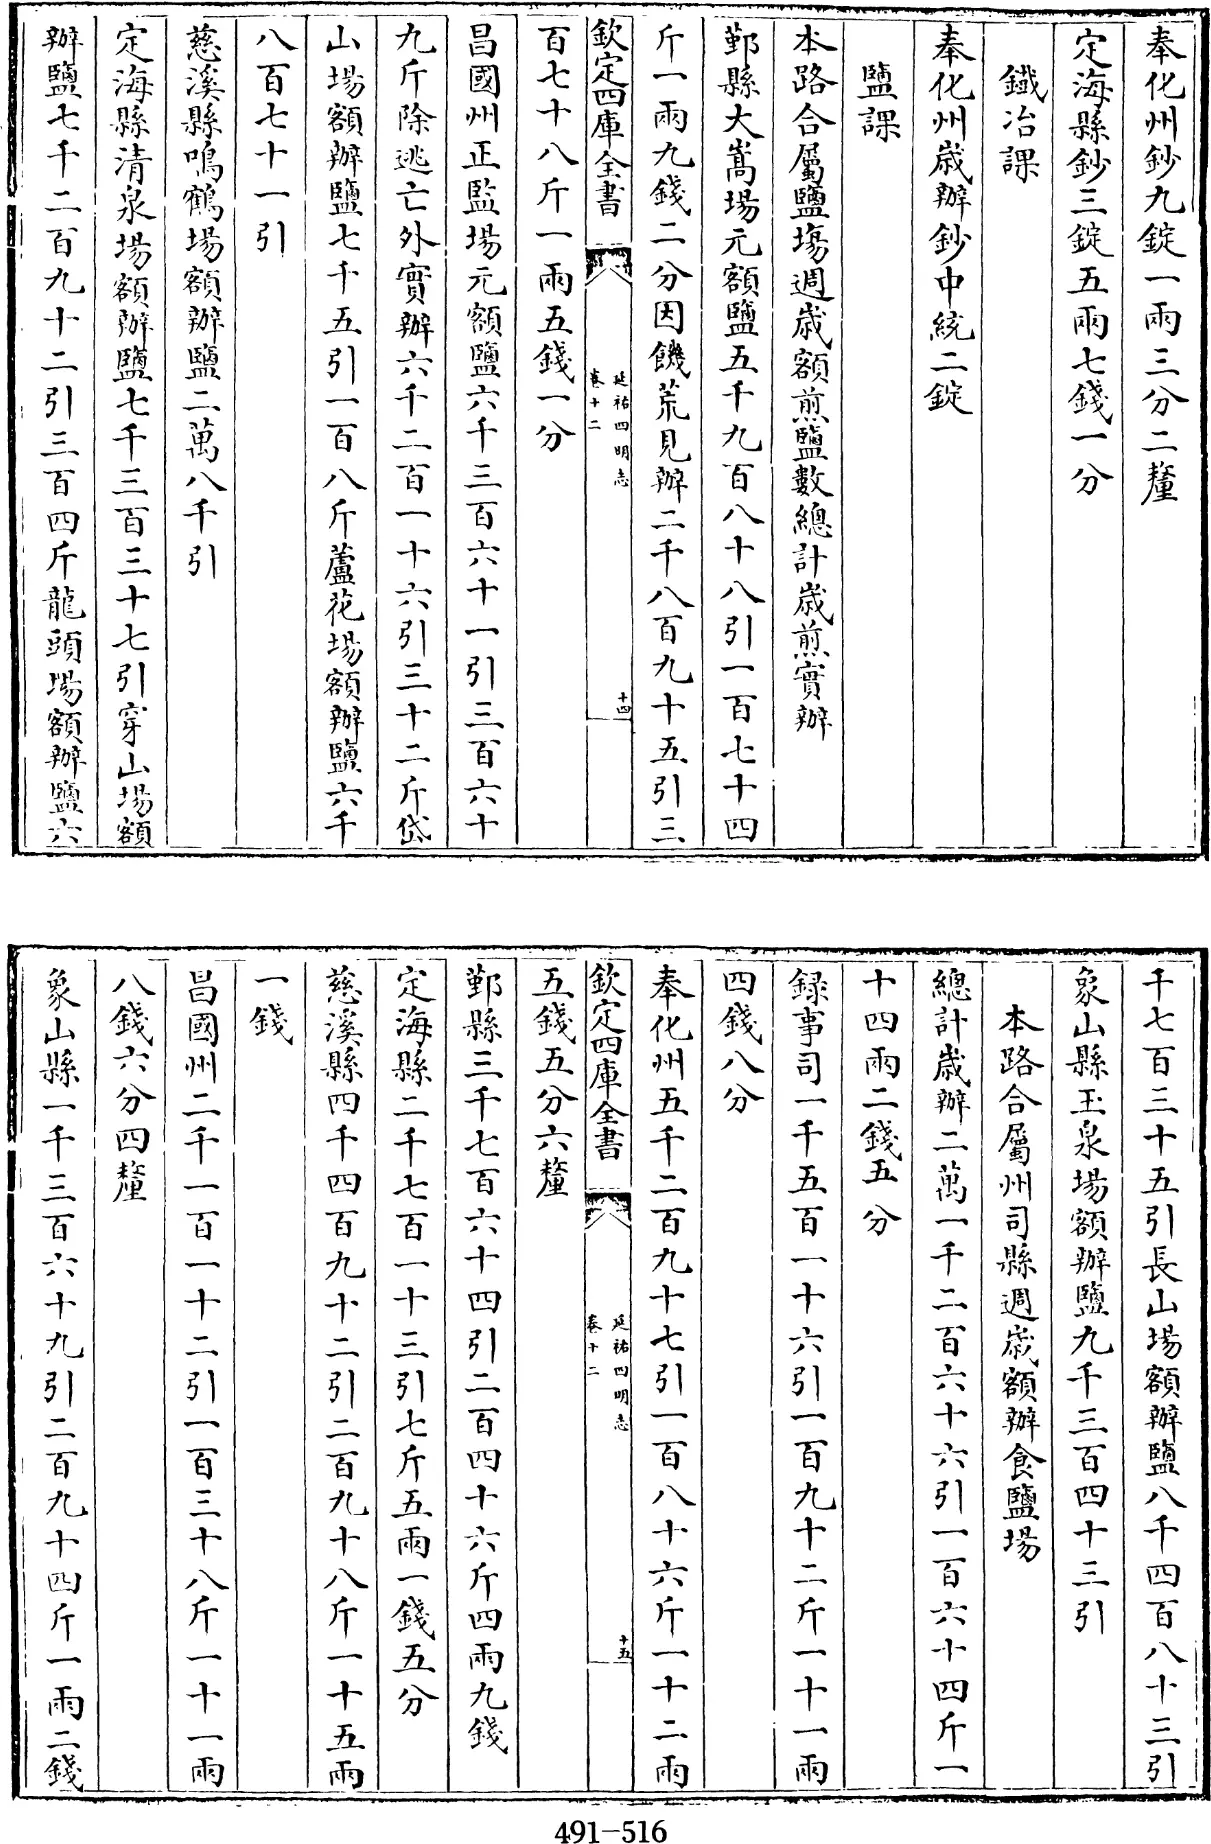 奉化州鈔九錠一兩三分二釐
定海縣鈔三錠五兩七錢一分
鐵冶課
奉化州歲辦鈔中統二錠
鹽課
本路合屬鹽塲週歲額煎鹽數總計歲煎實辦
鄞縣大嵩場元額鹽五千九百八十八引一百七十四
斤一兩九錢二分因饑荒見辦二千八百九十五引三
欽定四庫全書
延祐四明志
卷十二
十四
百七十八斤一兩五錢一分
昌國州正監場元額鹽六千三百六十一引三百六十
九斤除逃亡外實辦六千二百一十六引三十二斤岱
山場額辦鹽七千五引一百八斤蘆花場額辦鹽六千
八百七十一引
慈溪縣鳴鶴場額辦鹽二萬八千引
定海縣清泉場額辦鹽七千三百三十七引穿山場額
辦鹽七千二百九十二引三百四斤龍頭場額辦鹽六
千七百三十五引長山場額辦鹽八千四百八十三引
象山縣玉泉場額辦鹽九千三百四十三引
本路合屬州司縣週歲額辦食鹽場
總計歲辦二萬一千二百六十六引一百六十四斤一
十四兩二錢五分
錄事司一千五百一十六引一百九十二斤一十一兩
四錢八分
奉化州五千二百九十七引一百八十六斤一十二兩
欽定四庫全書
延祐四明志
卷十二
十五
五錢五分六釐
鄞縣三千七百六十四引二百四十六斤四兩九錢
定海縣二千七百一十三引七斤五兩一錢五分
慈溪縣四千四百九十二引二百九十八斤一十五兩
一錢
昌國州二千一百一十二引一百三十八斤一十一兩
八錢六分四釐
象山縣一千三百六十九引二百九十四斤一兩二錢
491-516